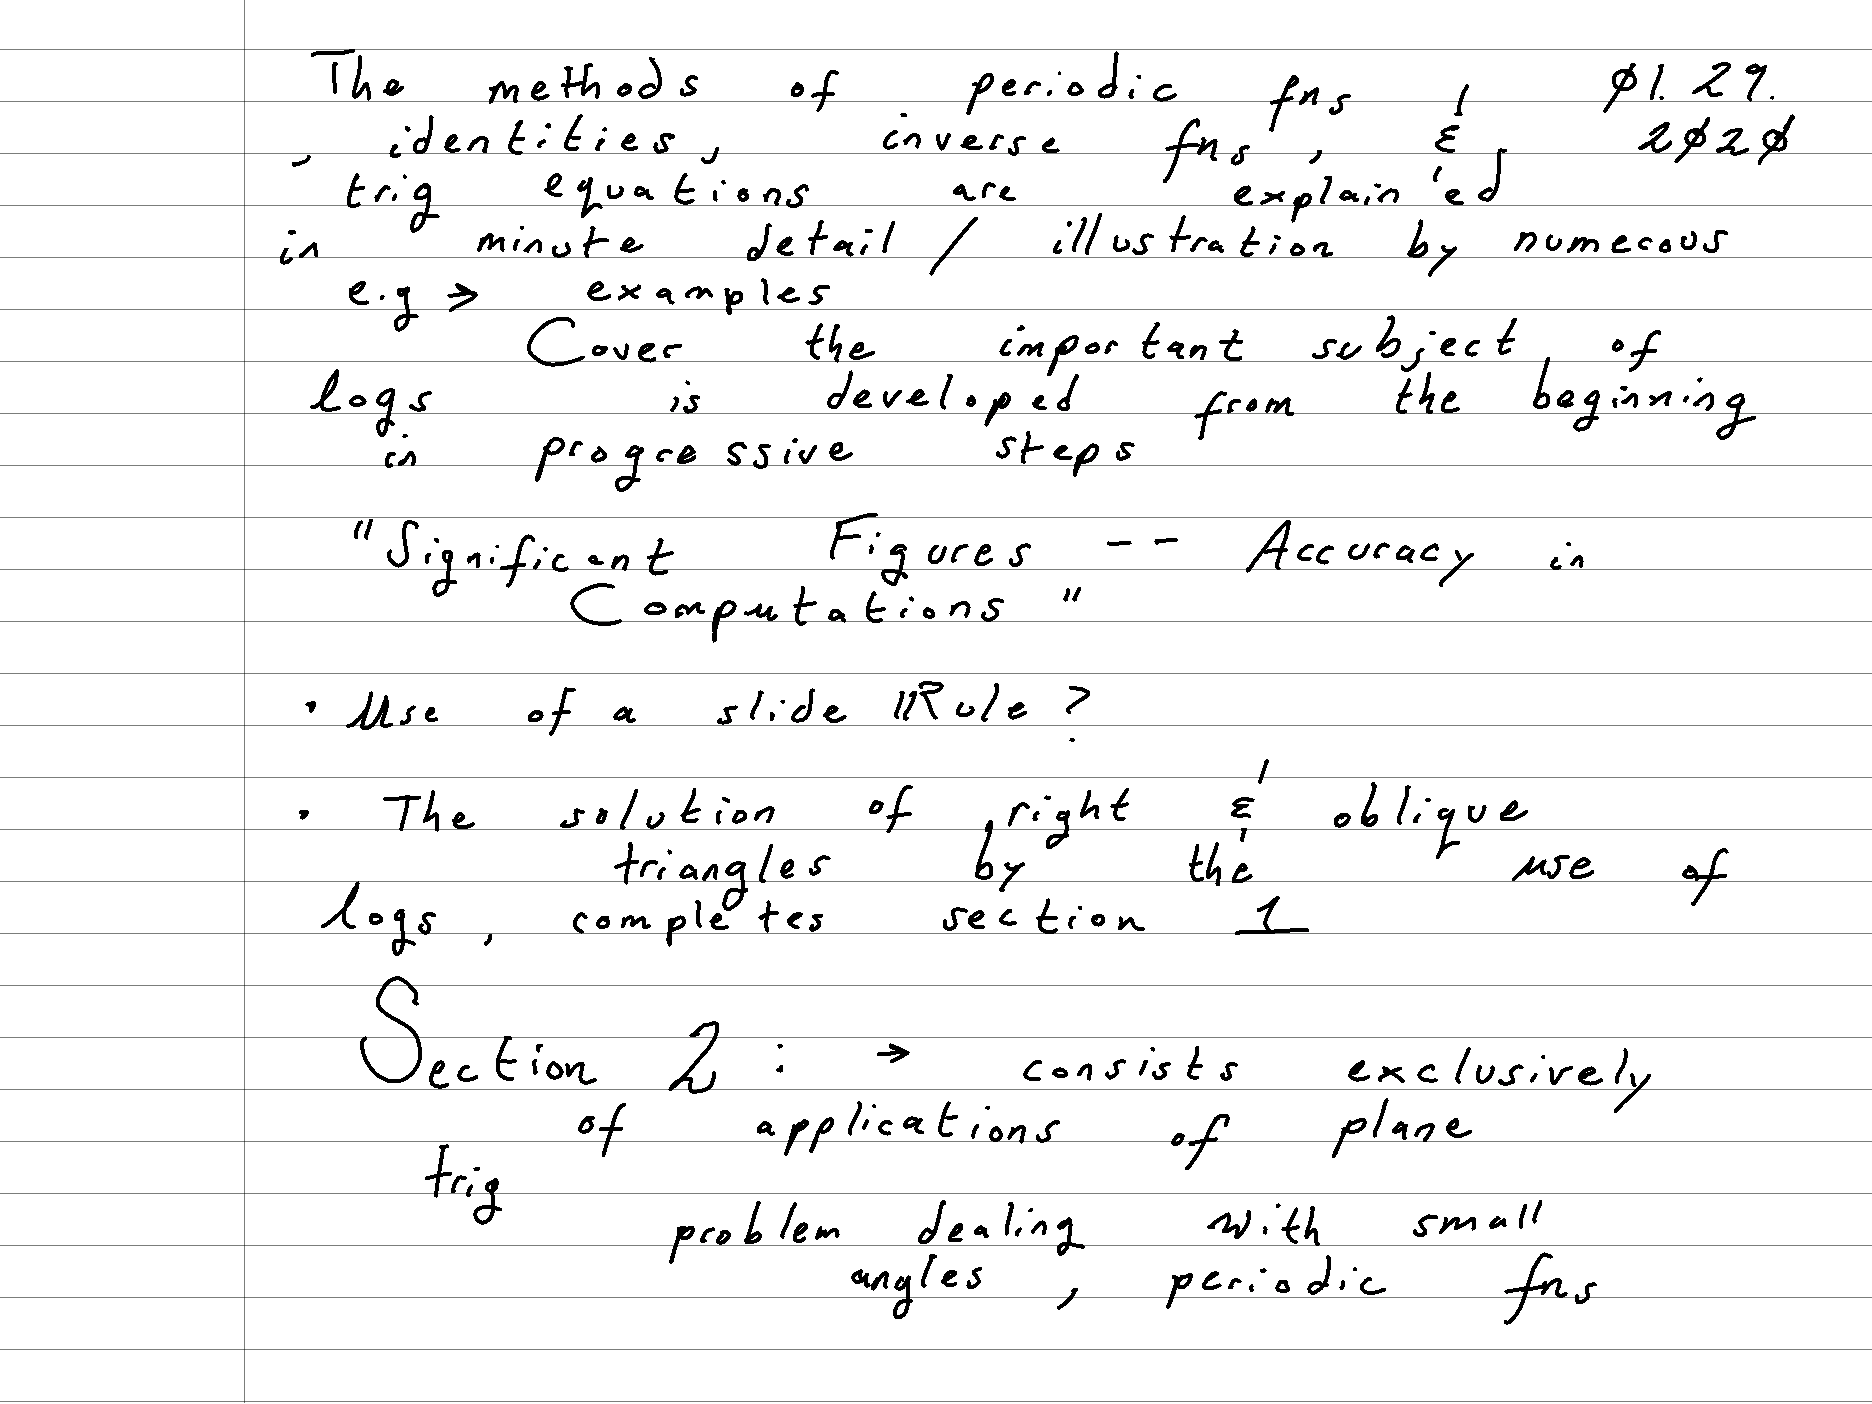 The methods of periodic fns & Ø1. 29.
, identities, inverse fns, & 2Ø2Ø
trig equations are explain'ed
in minute detail / illustration by numerous
e.g → examples
Cover the important subject of
logs is developed from the beginning
in progressive steps
"Significant Figures -- Accuracy in
Computations"
• Use of a slide Rule?
• The solution of right & oblique
triangles by the use of
logs, completes section 1
Section 2 : → consists exclusively
of applications of plane
trig
problem dealing with small
angles, periodic fns